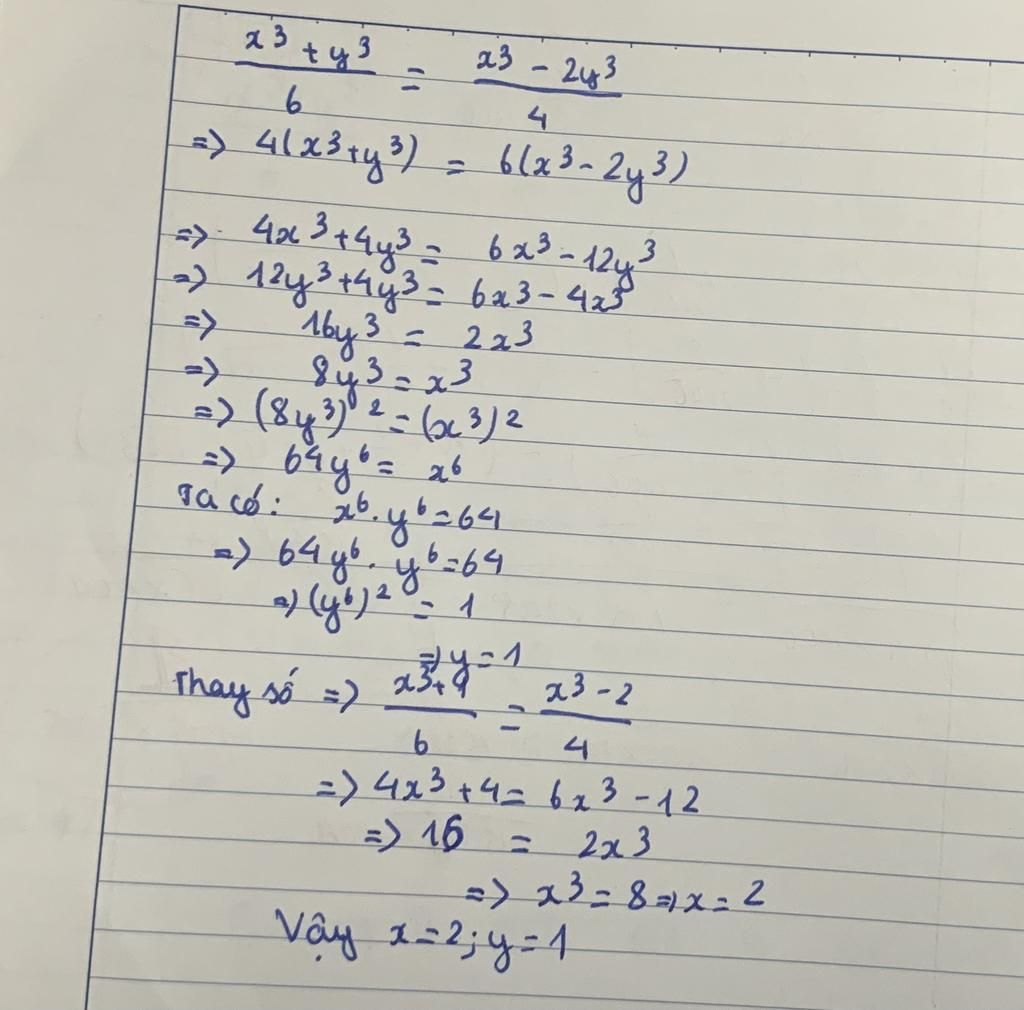 x³ + y³ / 6 = x³ - 2y³ / 4
=> 4(x³+y³) = 6(x³ - 2y³)
=> 4x³+4y³ = 6x³ - 12y³
=> 12y³+4y³ = 6x³ - 4x³
=> 16y³ = 2x³
=> 8y³ = x³
=> (8y³)² = (x³)²
=> 64y⁶ = x⁶
Ta có: x⁶ . y⁶ = 64
=> 64y⁶ . y⁶ = 64
=> (y⁶)² = 1
=> y = 1
Thay số => x³+1 / 6 = x³ - 2 / 4
=> 4x³ + 4 = 6x³ - 12
=> 16 = 2x³
=> x³ = 8 => x = 2
Vậy x = 2; y = 1